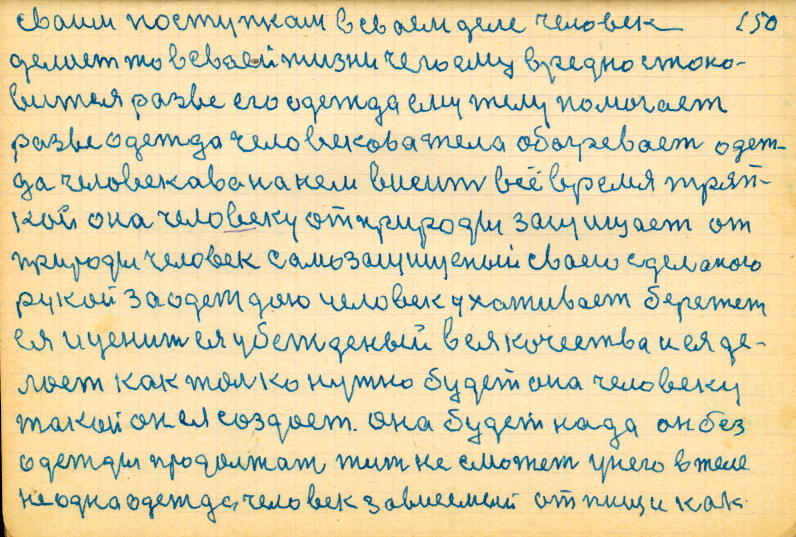 своим поступкам в своем деле человек 150
делает то в своей жизни чего ему вредно стоно-
вится разве его одежда ему телу помогает
разве одежда человекова тела обогревает одеж-
да человекава на нем висит всё время тряп-
кой она человеку от природы защищает от
природы человек самозащищеный своего сделаного
рукой за одеждою человек ухаживает бережет
ея и ценит ея убежденый в ея качества и ея де-
лает как только нужно будет она человеку
такой он ея создает. она будет нада он без
одежды продолжат жит не сможет у него в теле
не одна одежда, человек зависемый от пищи как